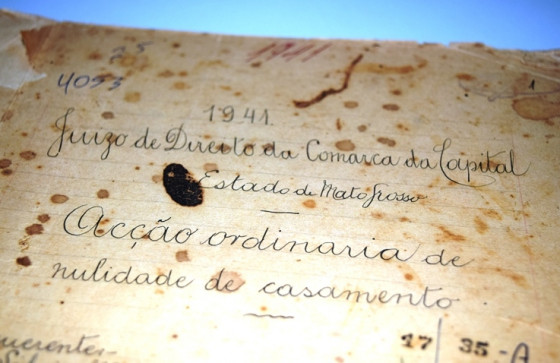 25
4093
1941
1
1941.
Juizo de Direito da Comarca da Capital
Estado de Mato Grosso
Acção ordinaria de
nulidade de casamento
17 | 35-A
querentes-